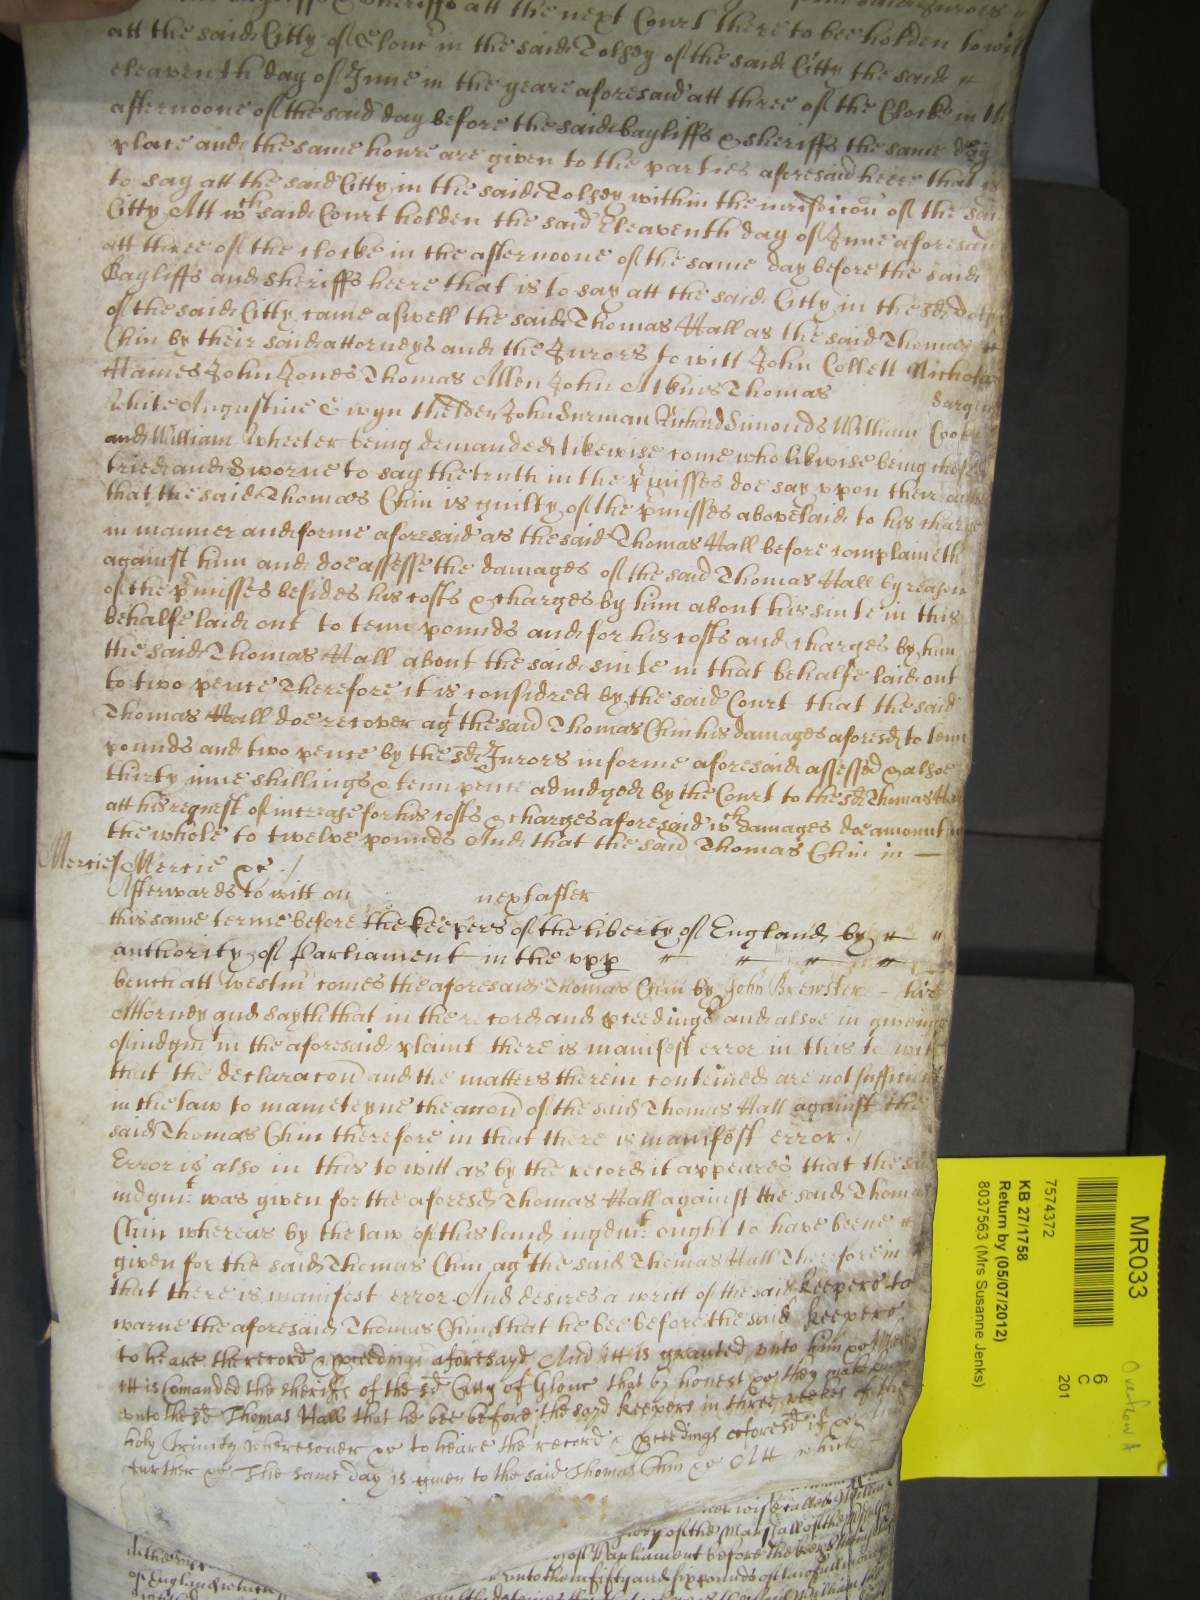 Bayliffs & Sheriffs att the next Court there to bee holden to wit
att the said Citty of Glouc in the said Tolsey of the said Citty the said
eleaventh day of June in the yeare aforesaid att three of the Clocke in the
afternoone of the said day before the said bayliffs & sheriffs the same day
place and the same houre are given to the parties aforesaid heere that is
to say att the said Citty in the said Tolsey within the iurisdiccon of the said
Citty Att wch said Court holden the said Eleaventh day of June aforesaid
att three of the clocke in the afternoone of the same day before the said
Bayliffs and sheriffs heere that is to say att the said Citty in the sd Tolsey
of the said Citty came aswell the said Thomas Hall as the said Thomas
Chin by their said attorneys and the Jurors to witt John Collett Nicholas
Hames John Jones Thomas Allen John Atkins Thomas Sargent
White Augustine Gwyn thelder John Surman Richard Simonds William Cooke
and William Wheeler being demanded likewise come who likwise being chosen
tried and sworne to say the truth in the pmisses doe say vpon their oathes
that the said Thomas Chin is guilty of the pmisses above laid to his charge
in manner and forme aforesaid as the said Thomas Hall before complaineth
against him and doe assesse the damages of the said Thomas Hall by reason
of the pmisses besides his costs & charges by him about his suite in this
behalfe laid out to tenn pounds and for his costs and charges by him
the said Thomas Hall about the said suite in that behalfe laid out
to two pence Therefore it is considred by the said Court that the said
Thomas Hall doe recover agt the said Thomas Chin his damages aforesd to tenn
pounds and two pence by the sd Jurors in forme aforesaid assessed & alsoe
thirty nine shillings & tenn pence adiudged by the Court to the sd Thomas Hall
att his request of increase for his costs & charges aforesaid wch damages doe amount in
the whole to twelve pounds And that the said Thomas Chin in —
Mercie/ Mercie &c ./
Afterwards to witt on next after
this same terme before the keepers of the liberty of England by
authority of Parliament in the vpp
bench att Westm comes the aforesaid Thomas Chin by John Brewster - his
Attorney and sayth that in the record and pceedings and alsoe in giveing
of iudgmt in the aforesaid plaint there is manifest error in this to witt
that the declaracon and the matters therein conteined are not sufficient
in the law to mainteyne the accon of the said Thomas Hall against the
said Thomas Chin therefore in that there is manifest error ./
Error is also in this to witt as by the record it appeares that the said
iudgmt: was given for the aforesd Thomas Hall against the said Thomas
Chin whereas by the law of this land iugdmt: ought to have beene
given for the said Thomas Chin agt the said Thomas Hall Therefore in
that there is manifest error And desires a writt of the said keepers to
warne the aforesaid Thomas Chin that he bee before the said keepers
to heare the record & pceedings aforesayd And itt is graunted vnto him &c
itt is Comanded the sheriffs of the sd Citty of Glouc that by honest &c they make knowne
vnto the sd Thomas Hall that he bee before the sayd keepers in three weekes of the
holy Trinity wheresoever &c to heare the record & pceedings aforesd if &c And
further &c The same day is given to the said Thomas Chin &c Att which
of the Marshall of the
of Parliament before the keepers
vnto them fifty and six pounds of lawfull money
of England which
MR033
Overflow A
6
C
201
7574372
KB 27/1758
Return by (05/07/2012)
8037563 (Mrs Susanne Jenks)